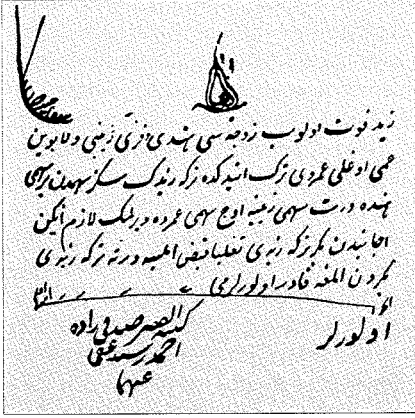 زيد فوت اولوب زوجه سى هندى و قزى زينبى و لابوين
عمى اوغلى عمروى ترك ايتدكده تركه زيدك سكز سهمدن بر سهمى
هنده درت سهمى زينبه اوج سهمى عمروه ويرلمك لازم ايكن
اجانبدن بكر تركه زيدى تغلبا قبض ايلسه ورثه تركه زيدى
بكردن المغه قادر اولورلرمى
اولورلر
كتبه الفقير صدقى زاده
احمد رشيد عفى
عنهما